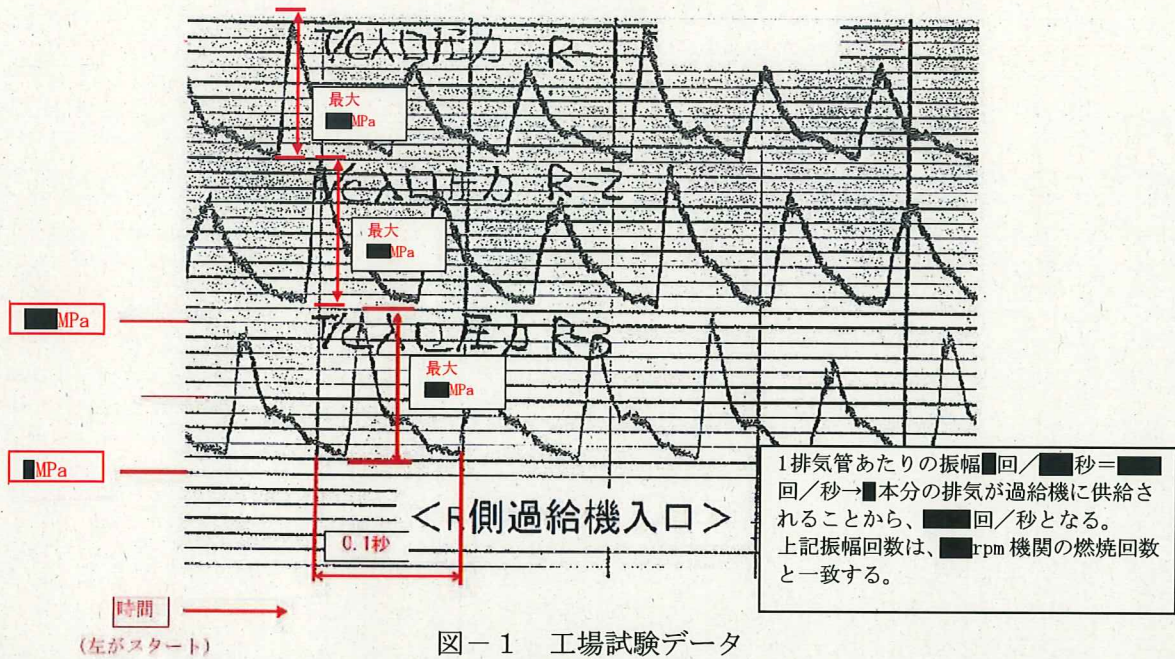 T/C入口圧力 R-
最大
MPa
T/C入口圧力 R-2
最大
MPa
MPa
T/C入口圧力 R-3
最大
MPa
MPa
1排気管あたりの振幅 回/ 秒=
回/秒→ 本分の排気が過給機に供給さ
れることから、 回/秒となる。
上記振幅回数は、 rpm 機関の燃焼回数
と一致する。
<R側過給機入口>
0.1秒
時間
(左がスタート)
図-1 工場試験データ